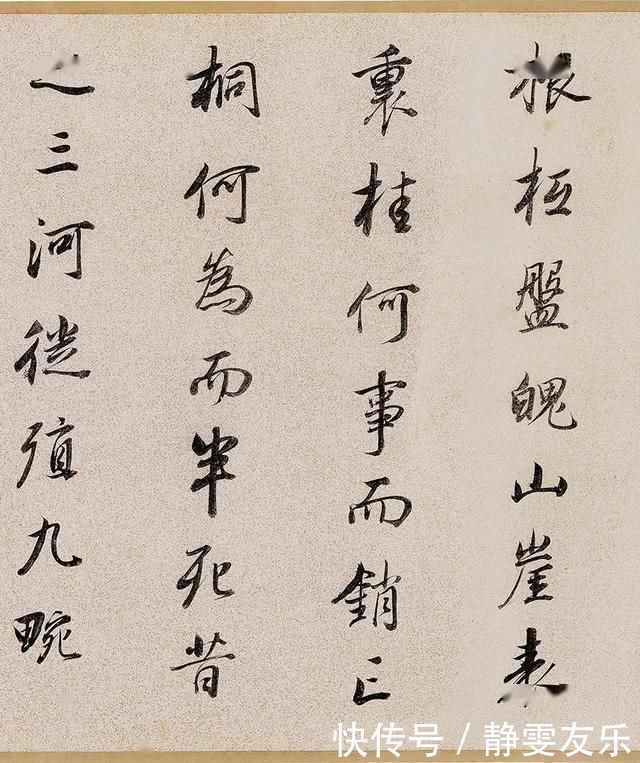 根柢盤魄山崖表
裏桂何事而銷亡
桐何為而半死昔
之三河徙殖九畹
快传号/静雯友乐